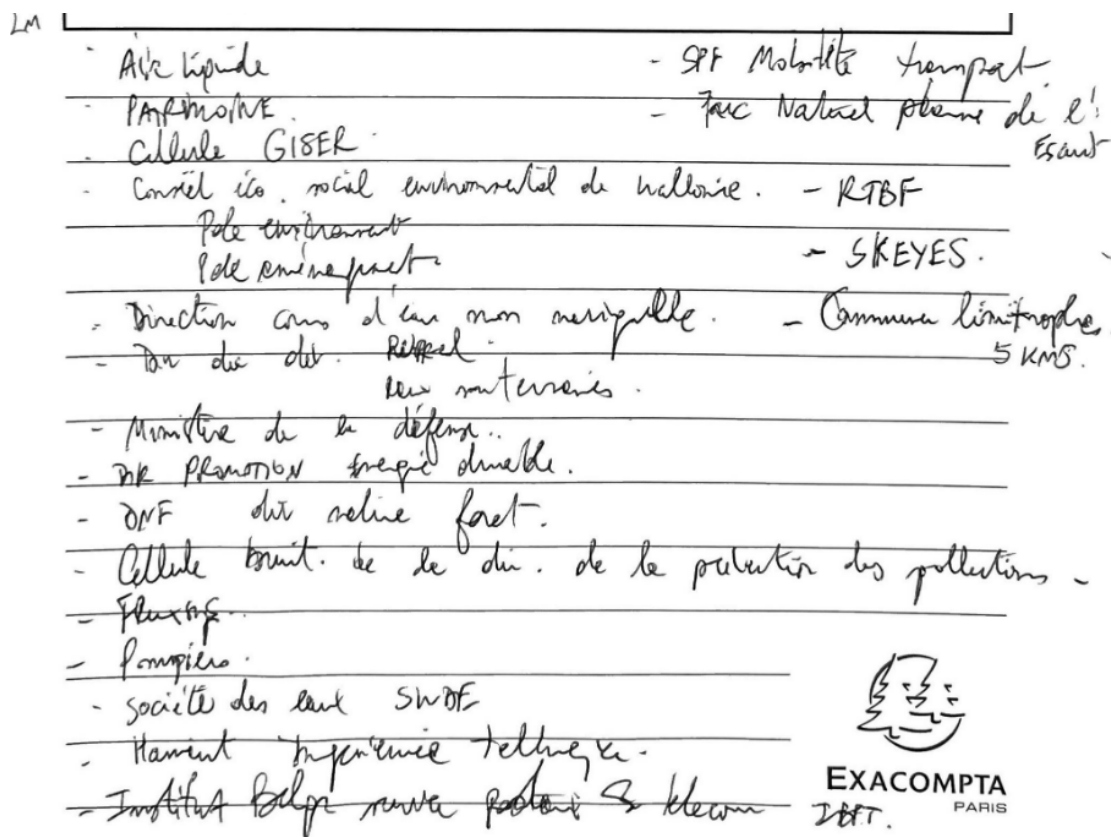 LM
- Air liquide
- PATRIMOINE.
- Cellule GISER
- Conseil éco. social environnemental de wallonie.
Pole environnement
Pole aménagement
- Direction cours d'eau non navigable.
- Dir des
eaux souterraines.
- Ministère de la défense..
- DIR PROMOTION énergie durable.
- DNF nature foret.
- Cellule bruit. de la dir. de la prévention des pollutions -
- Fluxys.
- Pompiers.
- Société des eaux SWDE
- Ingénierie
- Institut Belge postaux & telecom IBPT.
- SPF Mobilité transport
- Parc Naturel plaine de l'
Escaut
- RTBF
- SKEYES.
- Communes limitrophes
5 KMS.
EXACOMPTA
PARIS